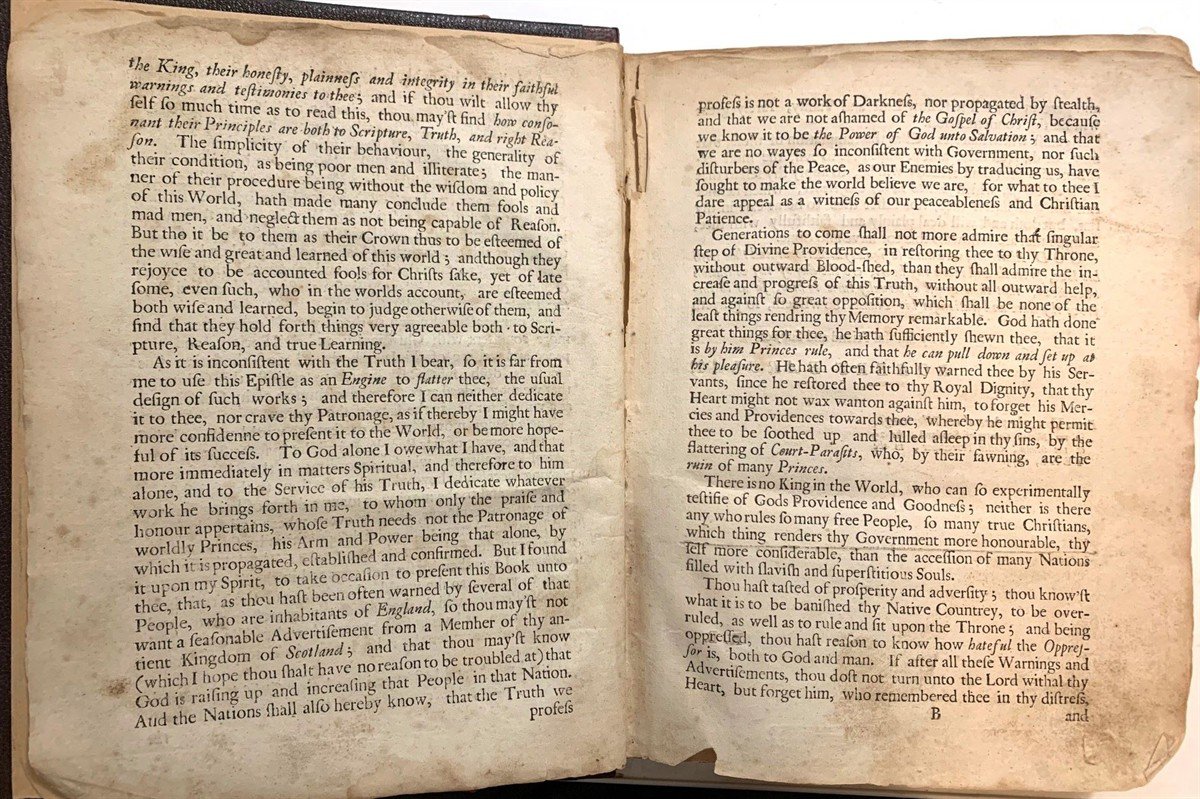 the King, their honeſty, plainneſs and integrity in their faithful
warnings and teſtimonies to thee; and if thou wilt allow thy
ſelf ſo much time as to read this, thou may'ſt find how conſo-
nant their Principles are both to Scripture, Truth, and right Rea-
ſon. The ſimplicity of their behaviour, the generality of
their condition, as being poor men and illiterate; the man-
ner of their procedure being without the wiſdom and policy
of this World, hath made many conclude them fools and
mad men, and neglect them as not being capable of Reaſon.
But tho it be to them as their Crown thus to be eſteemed of
the wiſe and great and learned of this world; andthough they
rejoyce to be accounted fools for Chriſts ſake, yet of late
ſome, even ſuch, who in the worlds account, are eſteemed
both wiſe and learned, begin to judge otherwiſe of them, and
find that they hold forth things very agreeable both to Scri-
pture, Reaſon, and true Learning.
As it is inconſiſtent with the Truth I bear, ſo it is far from
me to uſe this Epiſtle as an Engine to flatter thee, the uſual
deſign of ſuch works; and therefore I can neither dedicate
it to thee, nor crave thy Patronage, as if thereby I might have
more confidenne to preſent it to the World, or be more hope-
ful of its ſucceſs. To God alone I owe what I have, and that
more immediately in matters Spiritual, and therefore to him
alone, and to the Service of his Truth, I dedicate whatever
work he brings forth in me, to whom only the praiſe and
honour appertains, whoſe Truth needs not the Patronage of
worldly Princes, his Arm and Power being that alone, by
which it is propagated, eſtabliſhed and confirmed. But I found
it upon my Spirit, to take occaſion to preſent this Book unto
thee, that, as thou haſt been often warned by ſeveral of that
People, who are inhabitants of England, ſo thou may'ſt not
want a ſeaſonable Advertiſement from a Memher of thy an-
tient Kingdom of Scotland; and that thou may'ſt know
(which I hope thou ſhalt have no reaſon to be troubled at) that
God is raiſing up and increaſing that People in that Nation.
And the Nations ſhall alſo hereby know, that the Truth we
profeſs
profeſs is not a work of Darkneſs, nor propagated by ſtealth,
and that we are not aſhamed of the Goſpel of Chriſt, becauſe
we know it to be the Power of God unto Salvation; and that
we are no wayes ſo inconſiſtent with Government, nor ſuch
diſturbers of the Peace, as our Enemies by traducing us, have
ſought to make the world believe we are, for what to thee I
dare appeal as a witneſs of our peaceableneſs and Chriſtian
Patience.
Generations to come ſhall not more admire that ſingular
ſtep of Divine Providence, in reſtoring thee to thy Throne,
without outward Blood-ſhed, than they ſhall admire the in-
creaſe and progreſs of this Truth, without all outward help,
and againſt ſo great oppoſition, which ſhall be none of the
leaſt things rendring thy Memory remarkable. God hath done
great things for thee, he hath ſufficiently ſhewn thee, that it
is by him Princes rule, and that he can pull down and ſet up at
his pleaſure. He hath often faithfully warned thee by his Ser-
vants, ſince he reſtored thee to thy Royal Dignity, that thy
Heart might not wax wanton againſt him, to forget his Mer-
cies and Providences towards thee, whereby he might permit
thee to be ſoothed up and lulled aſleep in thy ſins, by the
flattering of Court-Paraſits, who, by their fawning, are the
ruin of many Princes.
There is no King in the World, who can ſo experimentally
teſtifie of Gods Providence and Goodneſs; neither is there
any who rules ſo many free People, ſo many true Chriſtians,
which thing renders thy Government more honourable, thy
ſelf more conſiderable, than the acceſſion of many Nations
filled with ſlaviſh and ſuperſtitious Souls.
Thou haſt taſted of proſperity and adverſity; thou know'ſt
what it is to be baniſhed thy Native Countrey, to be over-
ruled, as well as to rule and ſit upon the Throne; and being
oppreſſed, thou haſt reaſon to know how hateful the Oppreſ-
ſor is, both to God and man. If after all theſe Warnings and
Advertiſements, thou doſt not turn unto the Lord withal thy
Heart, but forget him, who remembered thee in thy diſtreſs,
B and